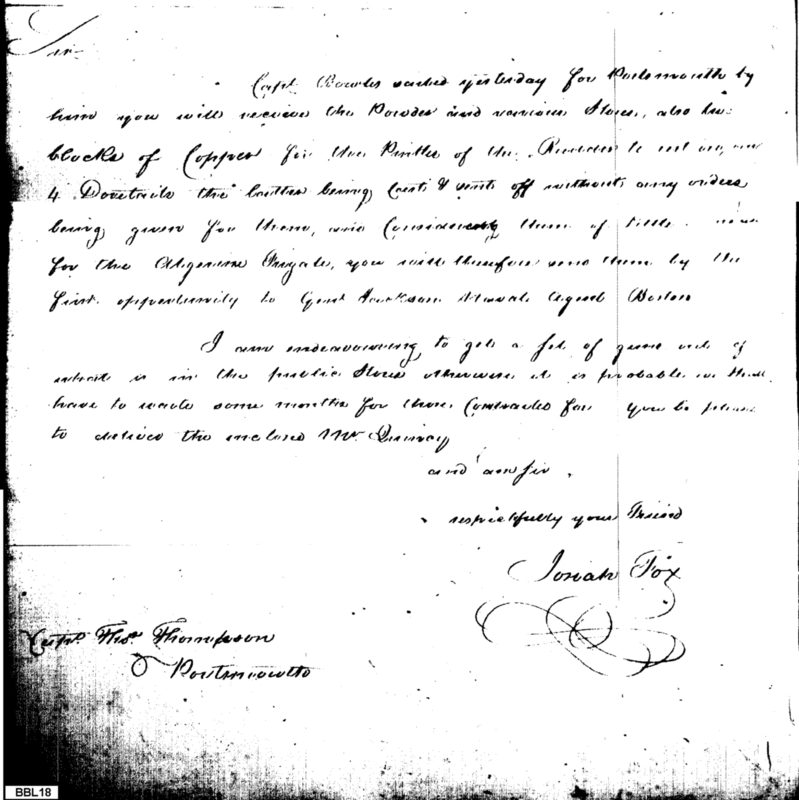 Sir
Capt. Bowles sailed yesterday for Portsmouth by
him you will receive the Powder and various Stores, also two
blocks of Copper for the Pintles of the Rudder to not on, and
4 Dovetails the latter being Cast & sent off without any orders
being given for them, and Considering them of little
for the Algerine Frigate, you will therefore send them by the
first opportunity to Genl Jackson Naval Agent Boston
I am endeavouring to get a set of guns out of
what is in the public Stores otherwise it is probable we shall
have to waite some months for those Contracted for you'l please
to deliver the inclosed Mr Quincy
and am sir
respectfully your Friend
Josiah Fox
Captn. Thos. Thompson
Portsmouth
BBL18